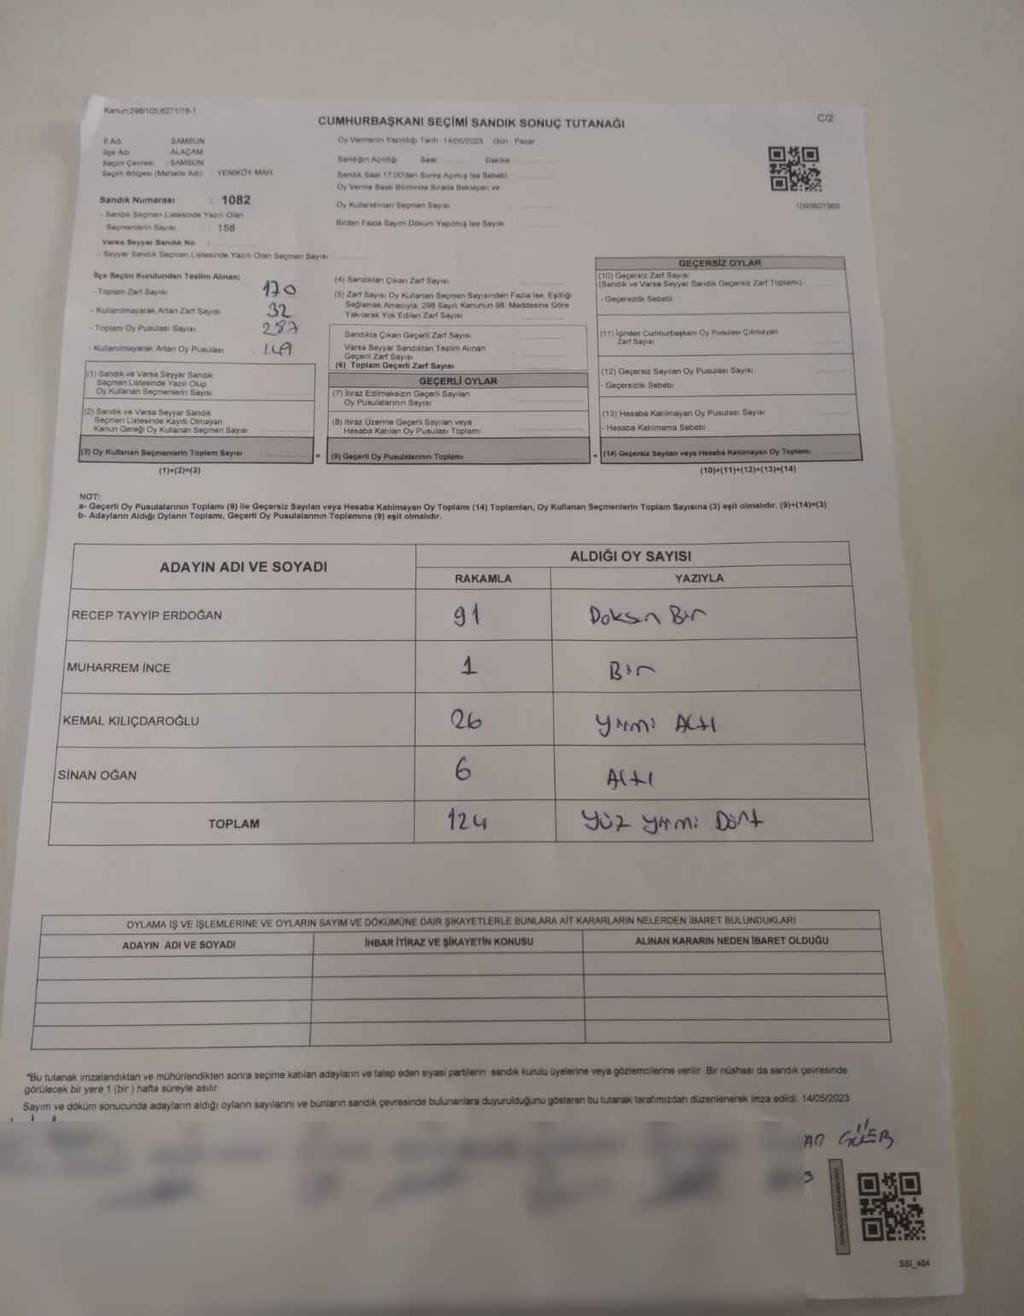 Kanun:298/105;6271/18-1
CUMHURBAŞKANI SEÇİMİ SANDIK SONUÇ TUTANAĞI
C/2
İl Adı : SAMSUN
İlçe Adı : ALAÇAM
Seçim Çevresi : SAMSUN
Seçim Bölgesi (Mahalle Adı) : YENİKÖY MAH.
Sandık Numarası : 1082
- Sandık Seçmen Listesinde Yazılı Olan
Seçmenlerin Sayısı : 158
Varsa Seyyar Sandık No :
- Seyyar Sandık Seçmen Listesinde Yazılı Olan Seçmen Sayısı
Oy Vermenin Yapıldığı Tarih : 14/05/2023 Gün : Pazar
Sandığın Açıldığı Saat Dakika
Sandık Saat 17:00'den Sonra Açılmış İse Sebebi
Oy Verme Saati Bitiminde Sırada Bekleyen ve
Oy Kullandırılan Seçmen Sayısı
Birden Fazla Sayım Döküm Yapılmış İse Sayısı
İlçe Seçim Kurulundan Teslim Alınan;
- Toplam Zarf Sayısı : 170
- Kullanılmayarak Artan Zarf Sayısı : 32
- Toplam Oy Pusulası Sayısı : 287
- Kullanılmayarak Artan Oy Pusulası : 149
(1) Sandık ve Varsa Seyyar Sandık
Seçmen Listesinde Yazılı Olup
Oy Kullanan Seçmenlerin Sayısı
(2) Sandık ve Varsa Seyyar Sandık
Seçmen Listesinde Kayıtlı Olmayan
Kanun Gereği Oy Kullanan Seçmen Sayısı
(3) Oy Kullanan Seçmenlerin Toplam Sayısı
(1)+(2)=(3)
(4) Sandıktan Çıkan Zarf Sayısı
(5) Zarf Sayısı Oy Kullanan Seçmen Sayısından Fazla İse, Eşitliği
Sağlamak Amacıyla, 298 Sayılı Kanunun 98. Maddesine Göre
Yakılarak Yok Edilen Zarf Sayısı
Sandıkta Çıkan Geçerli Zarf Sayısı
Varsa Seyyar Sandıktan Teslim Alınan
Geçerli Zarf Sayısı
(6) Toplam Geçerli Zarf Sayısı
GEÇERLİ OYLAR
(7) İtiraz Edilmeksizin Geçerli Sayılan
Oy Pusulalarının Sayısı
(8) İtiraz Üzerine Geçerli Sayılan veya
Hesaba Katılan Oy Pusulası Toplamı
= (9) Geçerli Oy Pusulalarının Toplamı
GEÇERSİZ OYLAR
(10) Geçersiz Zarf Sayısı
(Sandık ve Varsa Seyyar Sandık Geçersiz Zarf Toplamı)
- Geçersizlik Sebebi
(11) İçinden Cumhurbaşkanı Oy Pusulası Çıkmayan
Zarf Sayısı
(12) Geçersiz Sayılan Oy Pusulası Sayısı
- Geçersizlik Sebebi
(13) Hesaba Katılmayan Oy Pusulası Sayısı
- Hesaba Katılmama Sebebi
+ (14) Geçersiz Sayılan veya Hesaba Katılmayan Oy Toplamı
(10)+(11)+(12)+(13)=(14)
NOT:
a- Geçerli Oy Pusulalarının Toplamı (9) ile Geçersiz Sayılan veya Hesaba Katılmayan Oy Toplamı (14) Toplamları, Oy Kullanan Seçmenlerin Toplam Sayısına (3) eşit olmalıdır. (9)+(14)=(3)
b- Adayların Aldığı Oyların Toplamı, Geçerli Oy Pusulalarının Toplamına (9) eşit olmalıdır.
ADAYIN ADI VE SOYADI
ALDIĞI OY SAYISI
RAKAMLA YAZIYLA
RECEP TAYYİP ERDOĞAN 91 Doksan Bir
MUHARREM İNCE 1 Bir
KEMAL KILIÇDAROĞLU 26 Yirmi Altı
SİNAN OĞAN 6 Altı
TOPLAM 124 Yüz Yirmi Dört
OYLAMA İŞ VE İŞLEMLERİNE VE OYLARIN SAYIM VE DÖKÜMÜNE DAİR ŞİKAYETLERLE BUNLARA AİT KARARLARIN NELERDEN İBARET BULUNDUKLARI
ADAYIN ADI VE SOYADI İHBAR İTİRAZ VE ŞİKAYETİN KONUSU ALINAN KARARIN NEDEN İBARET OLDUĞU
*Bu tutanak imzalandıktan ve mühürlendikten sonra seçime katılan adayların ve talep eden siyasi partilerin sandık kurulu üyelerine veya gözlemcilerine verilir. Bir nüshası da sandık çevresinde
görülecek bir yere 1 (bir) hafta süreyle asılır.
Sayım ve döküm sonucunda adayların aldığı oyların sayılarını ve bunların sandık çevresinde bulunanlara duyurulduğunu gösteren bu tutanak tarafımızdan düzenlenerek imza edildi. 14/05/2023
SBI_404